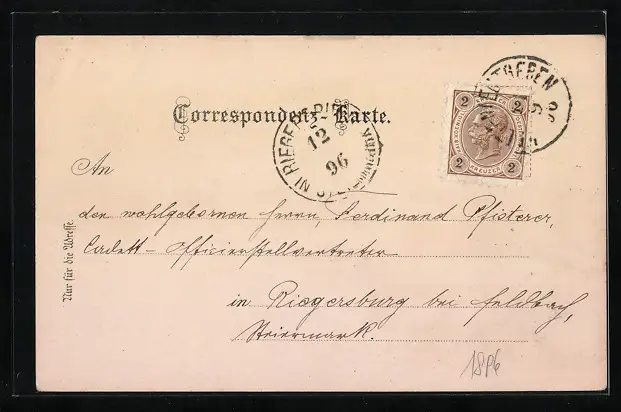 Correspondenz-Karte.
2 2
2 2
KREUZER
12
96
An
den wohlgebornen Herrn, Ferdinand Pfisterer,
Cadett-Officierstellvertreter
in Riegersburg bei Feldbach,
Steiermark.
Nur für die Adresse.
1896